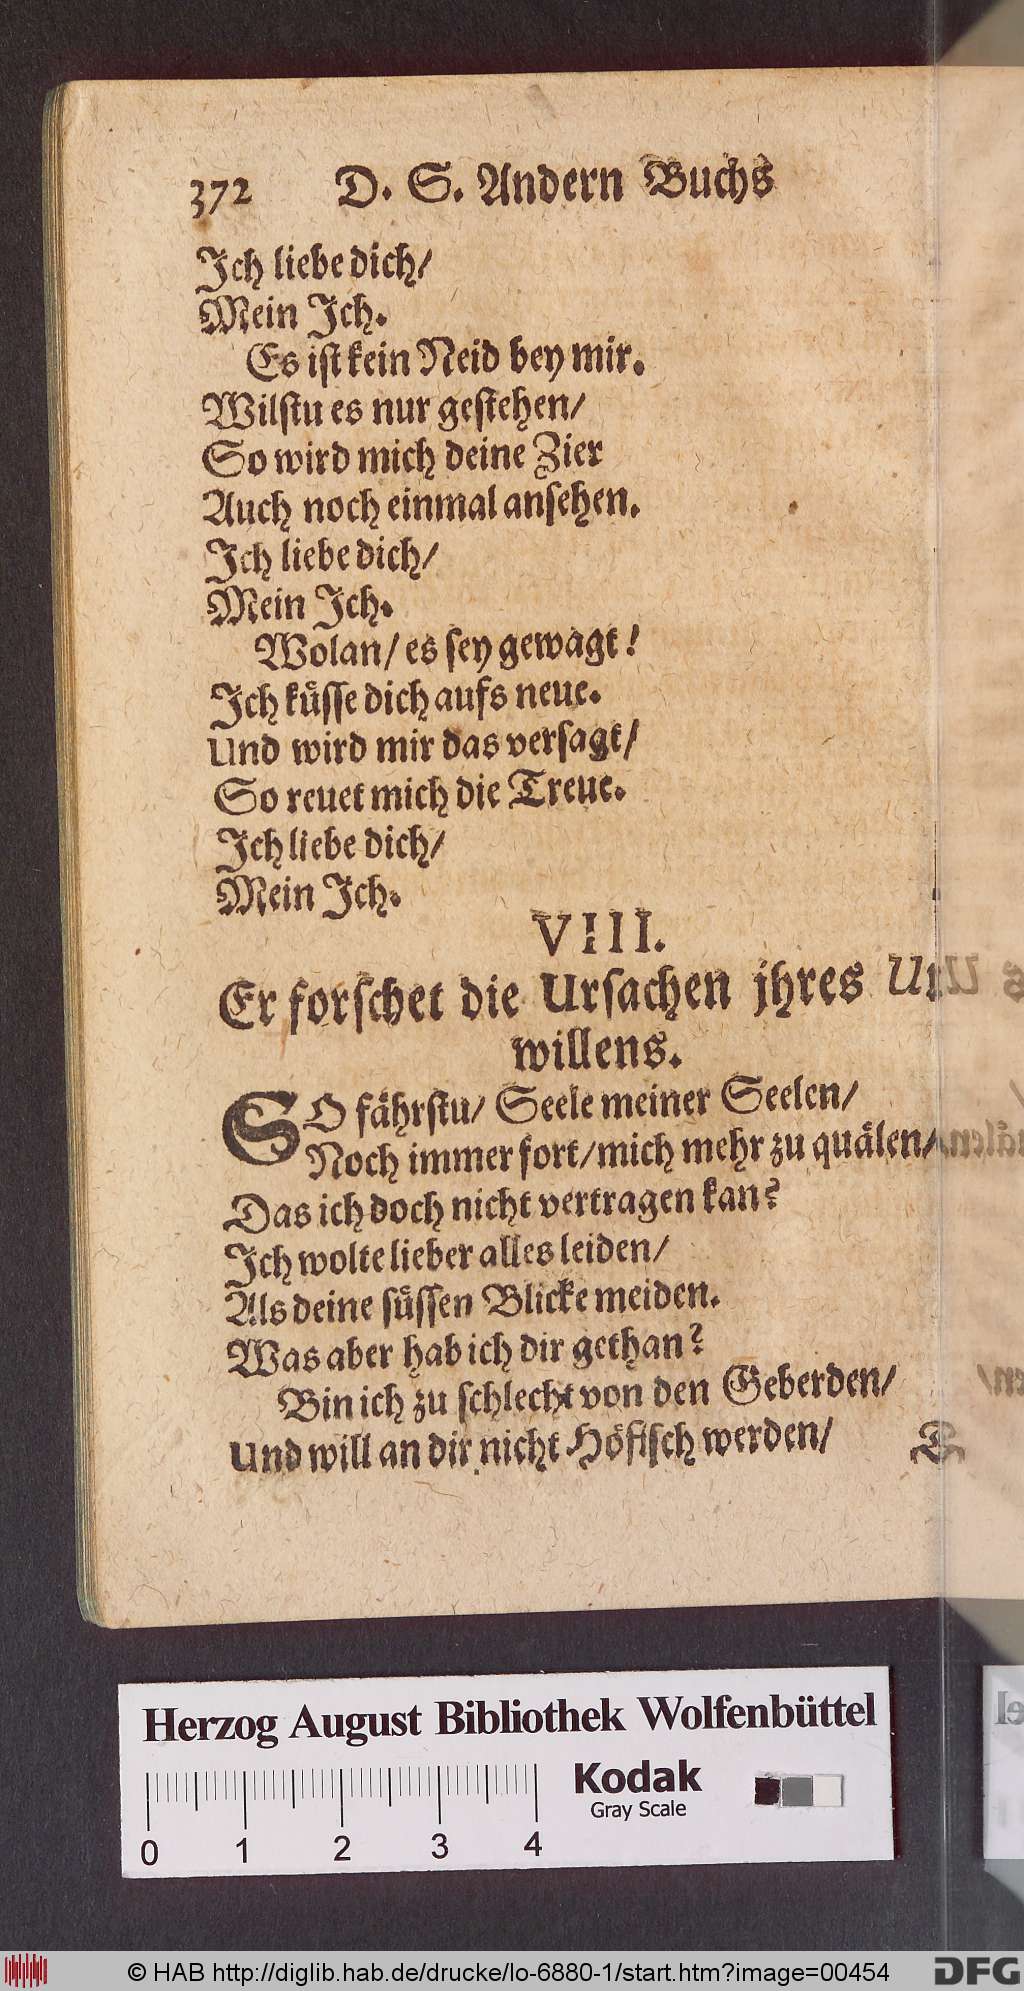 372 D. S. Andern Buchs
Ich liebe dich/
Mein Ich.
Es ist kein Neid bey mir.
Wilstu es nur gestehen/
So wird mich deine Zier
Auch noch einmal ansehen.
Ich liebe dich/
Mein Ich.
Wolan/ es sey gewagt!
Ich küsse dich aufs neue.
Und wird mir das versagt/
So reuet mich die Treue.
Ich liebe dich/
Mein Ich.
VIII.
Er forschet die Ursachen jhres Un
willens.
SO fährstu/ Seele meiner Seelen/
Noch immer fort/ mich mehr zu quälen/
Das ich doch nicht vertragen kan?
Ich wolte lieber alles leiden/
Als deine süssen Blicke meiden.
Was aber hab ich dir gethan?
Bin ich zu schlecht von den Geberden/
Und will an dir nicht Höfisch werden/
Herzog August Bibliothek Wolfenbüttel
Kodak
Gray Scale
0 1 2 3 4
© HAB http://diglib.hab.de/drucke/lo-6880-1/start.htm?image=00454
DFG